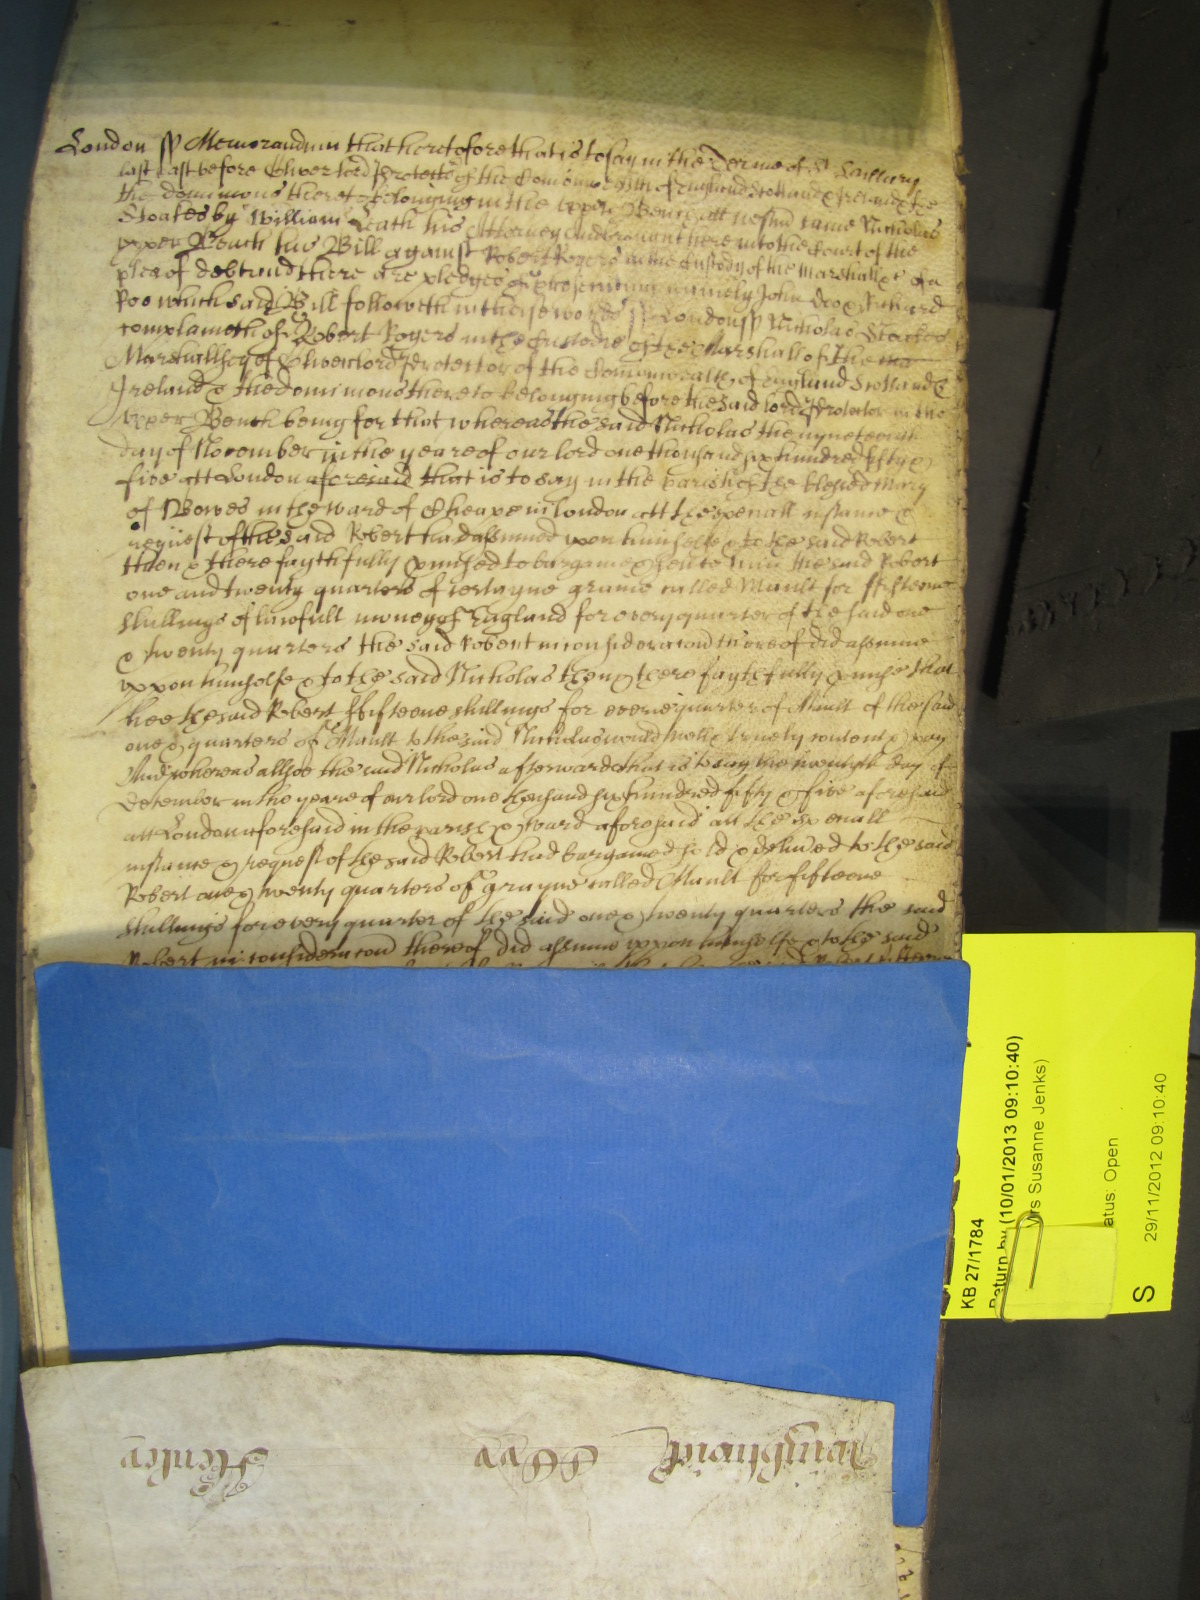 London ss Memorandum that heretofore that is to say in the Terme of St Hillary
last past before Oliver lord Protector of the Comonwealth of England Scotland & Ireland & the
the dominions thereto belonging in the upper Bench att westmr came Nicholas
Stoakes by William Heath his Attorney and brought here into the Court of the
upper Bench his Bill against Robert Rogers in the Custody of the Marshall &c of a
plea of debt and there are pledges of prosecuting namely John Doo & Richard
Roo which said Bill followeth in theise words ss London ss Nicholas Stoakes
complaineth of Robert Rogers in the Custodie of the Marshall of the
Marshallsey of Oliver lord Protector of the Comonwealth of England Scotland &
Ireland & the dominions thereto belonging before the said lord Protector in the
upper Bench being for that whereas the said Nicholas the nyneteenth
day of November in the yeare of our lord one thousand six hundred fifty &
five att London aforesaid that is to say in the parish of the blessed Mary
of Bowes in the ward of Cheape in London att the speciall instance &
request of the said Robert had assumed upon himselfe & to the said Robert
then & there faythfully promised to bargaine & sell to him the said Robert
one and twenty quarters of certayne graine called Mault for fifteene
shillings of lawfull money of England for every quarter of the said one
& twenty quarters the said Robert in consideracon thereof did assume
uppon himselfe & to the said Nicholas then & there faythfully promise that
hee the said Robert ffifteene shillings for everie quarter of Mault of the said
one & quarters of Mault to the said Nicholas would well & truely content & pay
And whereas allsoe the said Nicholas afterwards that is to say the twentyth day of
December in the yeare of our lord one thousand six hundred fifty & five aforesaid
att London aforesaid in the parish & ward aforesaid att the speciall
instance & request of the said Robert had bargained sold & delivered to the said
Robert one & twenty quarters of grayne called Mault for fifteene
shillings for every quarter of the said one & twenty quarters the said
Robert in consideracon thereof did assume uppon himselfe & to the said
KB 27/1784
Return by (10/01/2013 09:10:40)
Mrs Susanne Jenks)
atus: Open
29/11/2012 09:10:40
S
Henley